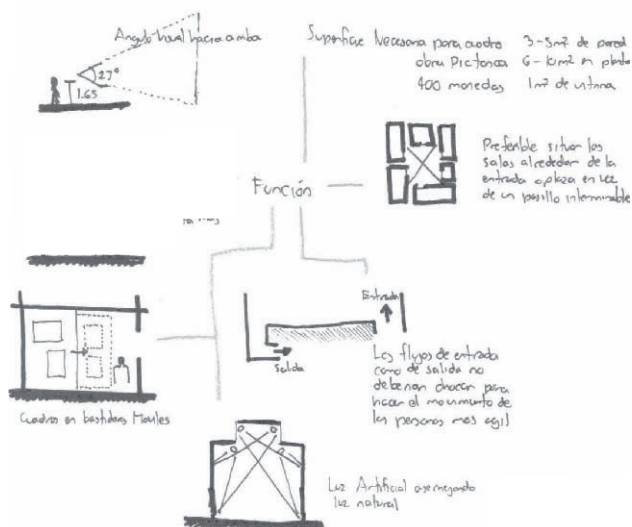 Angulo visual hacia arriba
27°
1.65
Superficie Necesaria para cuadro 3-5m² de pared
obra Pictorica 6-10m² en planta
400 monedas 1m² de vitrina
Preferible situar las
salas alrededor de la
entrada o plaza en vez
de un pasillo interminable
Función
Entrada
Salida
Los flujos de entrada
como de salida no
deberian chocar para
hacer el movimiento de
las personas mas agil
Cuadros en bastidores Moviles
Luz Artificial asemejando
luz natural